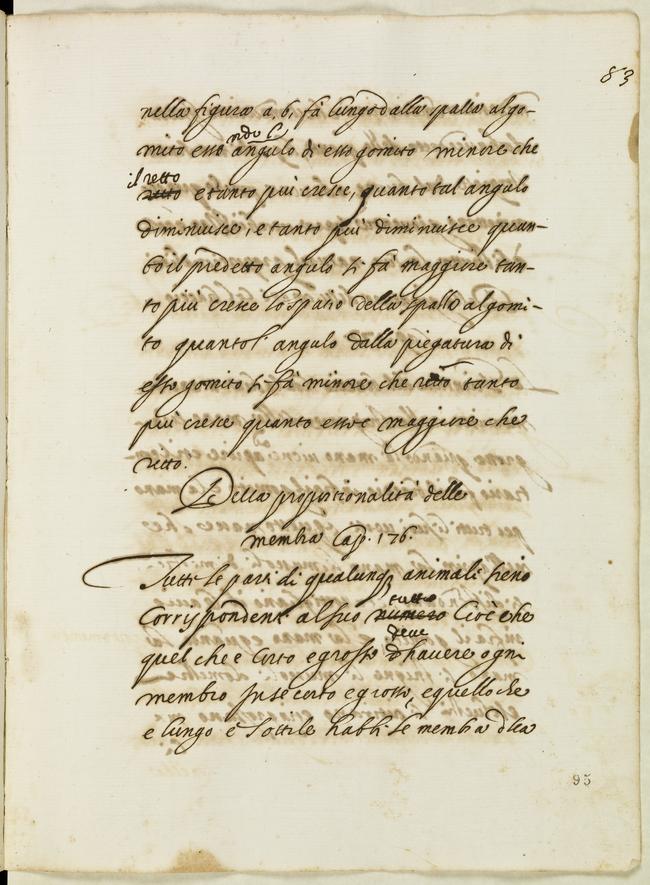 83
nella figura a, b, fà lungo dalla spalla al go-
ndo l'
mito esso angulo di esso gomito minore che
il retto
retto e tanto più cresce, quanto tal angulo
diminuisce, e tanto più diminuisce quan-
to il predetto angulo si fà maggiore tan-
to più cresce lo spatio della spalla al gomi-
to quanto l'angulo dalla piegatura di
esso gomito si fà minore che retto tanto
più cresce quanto esso è maggiore che
retto.
Della proportionalità delle
membra Cap. 176.
Tutte le parti di qualunq animali sieno
tutto
Corrispondenti al suo numero Cioè che
deve
quel che è Corto e grosso d hauere ogni
membro in se corto e grosso, e quello che
e lungo e sottile habbi le membra dlla
95